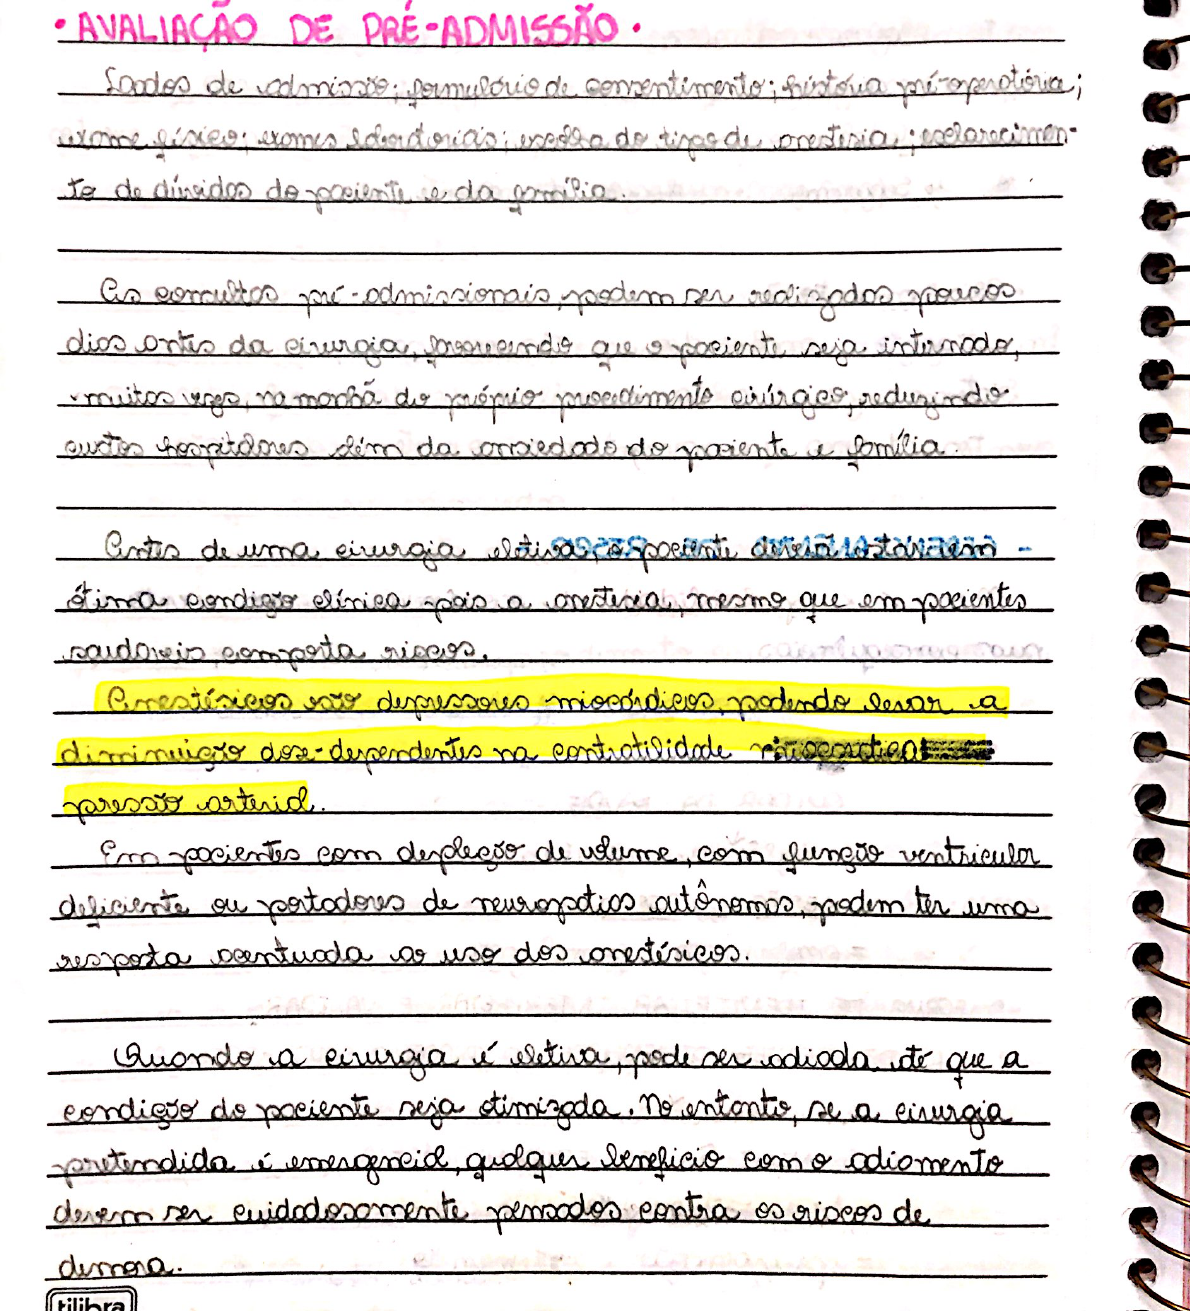 • AVALIAÇÃO DE PRÉ-ADMISSÃO •
Dados de admissão; formulário de consentimento; história pré-operatória;
exame físico; exames laboratoriais; escolha do tipo de anestesia; esclarecimen-
to de dúvidas do paciente e da família.
As consultas pré-admissionais, podem ser realizados poucos
dias antes da cirurgia, favorecendo que o paciente seja internado,
muitas vezes, na manhã do próprio procedimento cirúrgico, reduzindo
custos hospitalares além da ansiedade do paciente e família.
Antes de uma cirurgia eletiva, o paciente deverá estar em
ótima condição clínica pois a anestesia, mesmo que em pacientes
saudáveis comporta riscos.
Anestésicos são depressores miocárdicos, podendo levar a
diminuição dose-dependentes na contratilidade
pressão arterial.
Em pacientes com depleção de volume, com função ventricular
deficiente ou portadores de neuropatias autônomas, podem ter uma
resposta acentuada ao uso dos anestésicos.
Quando a cirurgia é eletiva, pode ser adiada até que a
condição do paciente seja otimizada. No entanto, se a cirurgia
pretendida é emergencial, qualquer benefício com o adiamento
devem ser cuidadosamente pensados contra os riscos de
demora.
tilibra